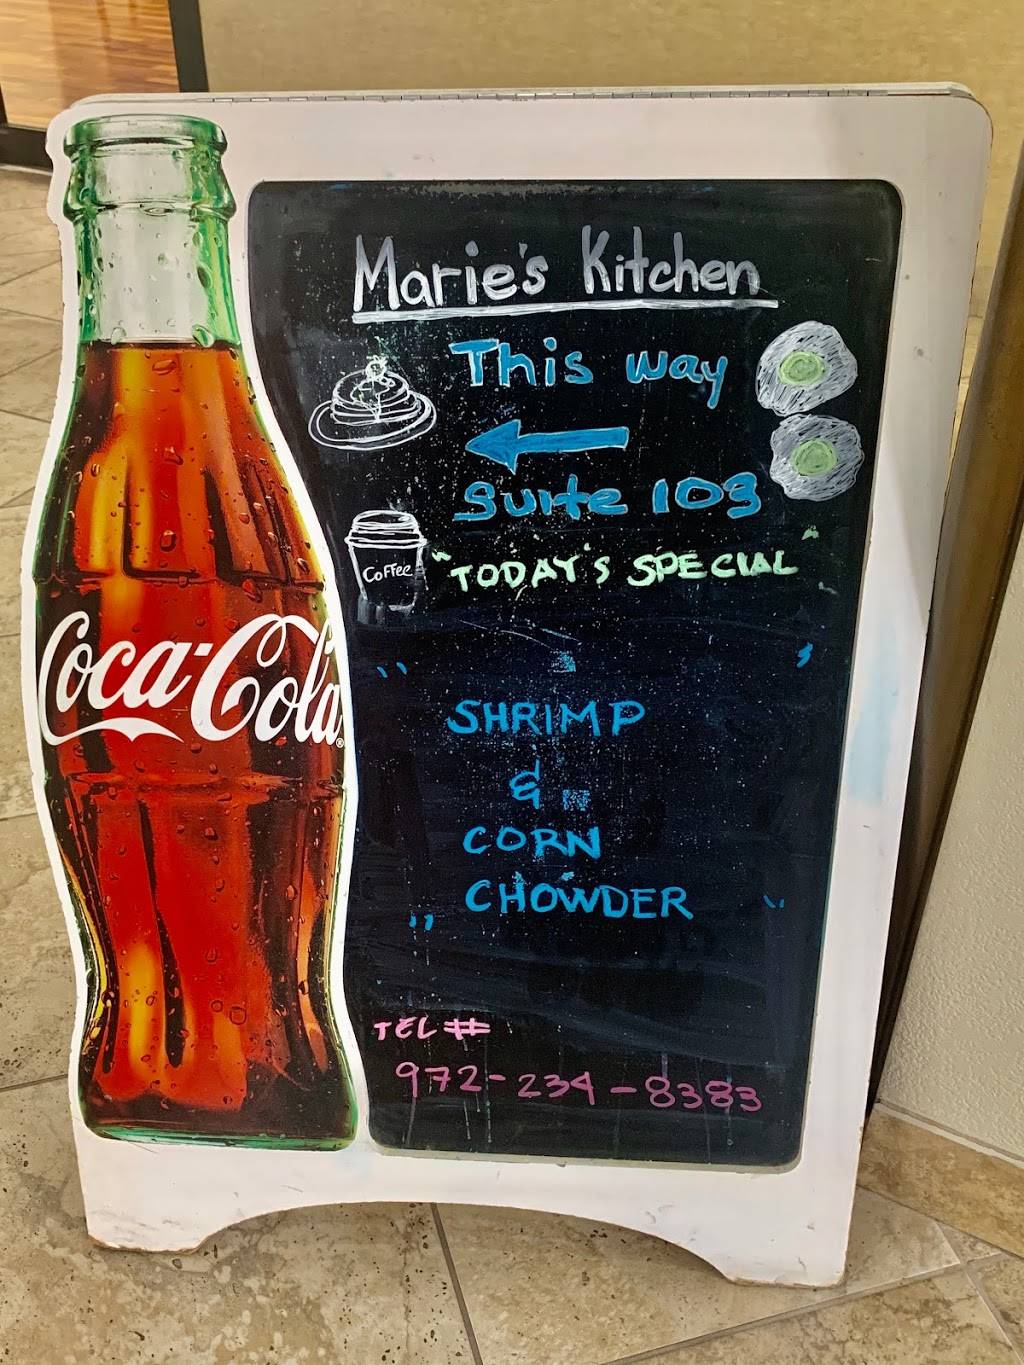 Marie's Kitchen
This way
Suite 103
Coffee
"TODAY'S SPECIAL"
"SHRIMP
&
CORN
CHOWDER"
TEL #
972-234-8383
Coca-Cola®